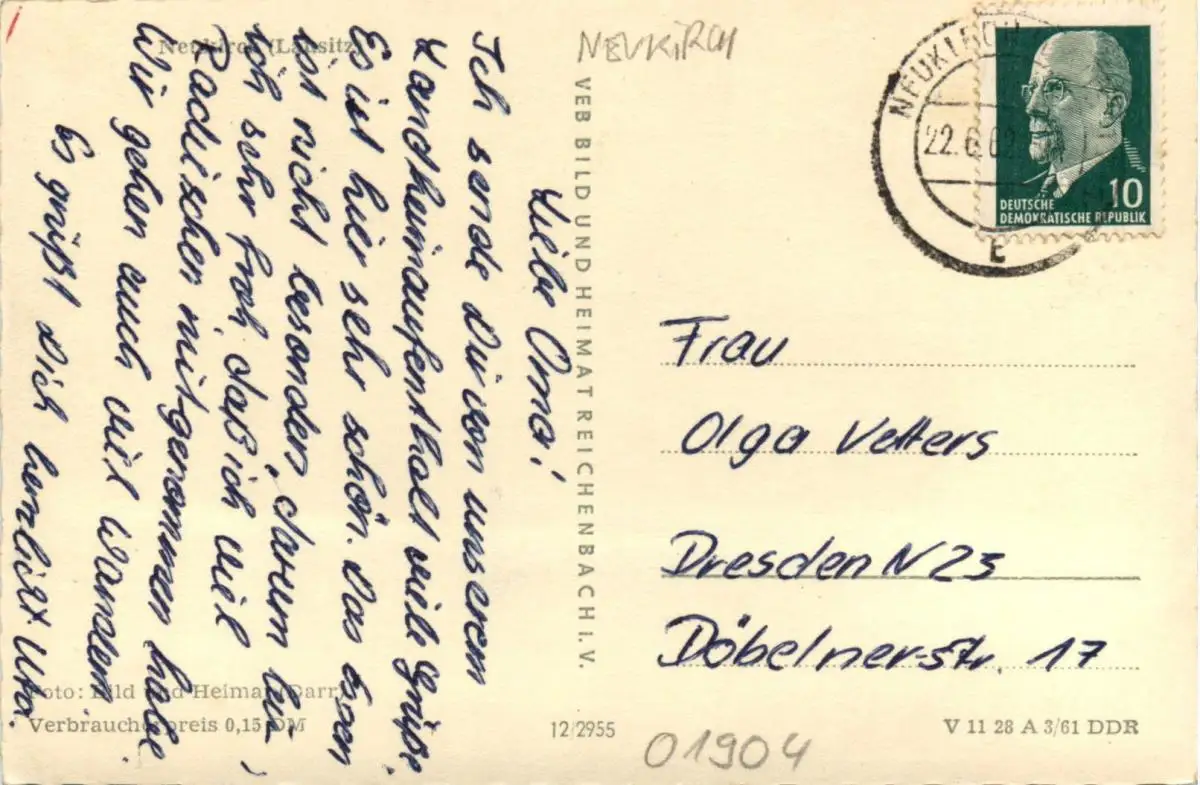 Neukirch (Lausitz)
NEUKIRCH
NEUKIRCH
22.6.62
E
DEUTSCHE
DEMOKRATISCHE REPUBLIK
10
Liebe Oma!
Ich sende Dir von unserem
Landheimaufenthalt viele Grüße.
Es ist hier sehr schön. Das Essen
ist nicht besonders, darum bin
ich sehr froh daß ich viel
Radischen mitgenommen habe.
Wir gehen auch viel Wandern.
Es grüßt Dich herzlich Uta.
VEB BILD UND HEIMAT REICHENBACH I. V.
Frau
Olga Vetters
Dresden N 23
Döbelner-str. 17
Foto: Bild und Heimat (Darr)
Verbraucherpreis 0,15 DM
12/2955
V 11 28 A 3/61 DDR
01904